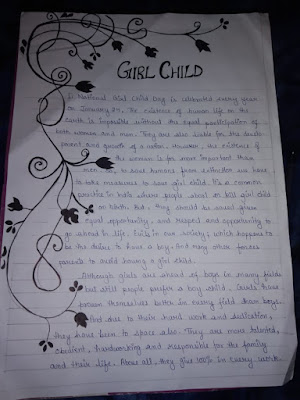 GIRL CHILD
National Girl Child Day is celebrated every year
on January 24. The existence of human life on the
earth is impossible without the equal participation of
both women and men. They are also liable for the
ment and growth of a nation. However, the existence of
the woman is far more important than
men. So, to save humans from extinction we have
to take measures to save girl child. It's a common
practice in India where people abort or kill girl child
on birth. But, they should be saved given
equal opportunity, and respect and opportunity to
go ahead in life. in our society, which happens to
be the desire to have a boy. And many other forces
parents to avoid having a girl child.
Although girls are ahead of boys in many fields
but still people prefer a boy child. Girls have
proven themselves better in every field than boys.
And due to their hard work and dedication,
they have been to space also. They are more talented,
obedient, hardworking and responsible for the family
and their life. Above all, they give 100% in every work.